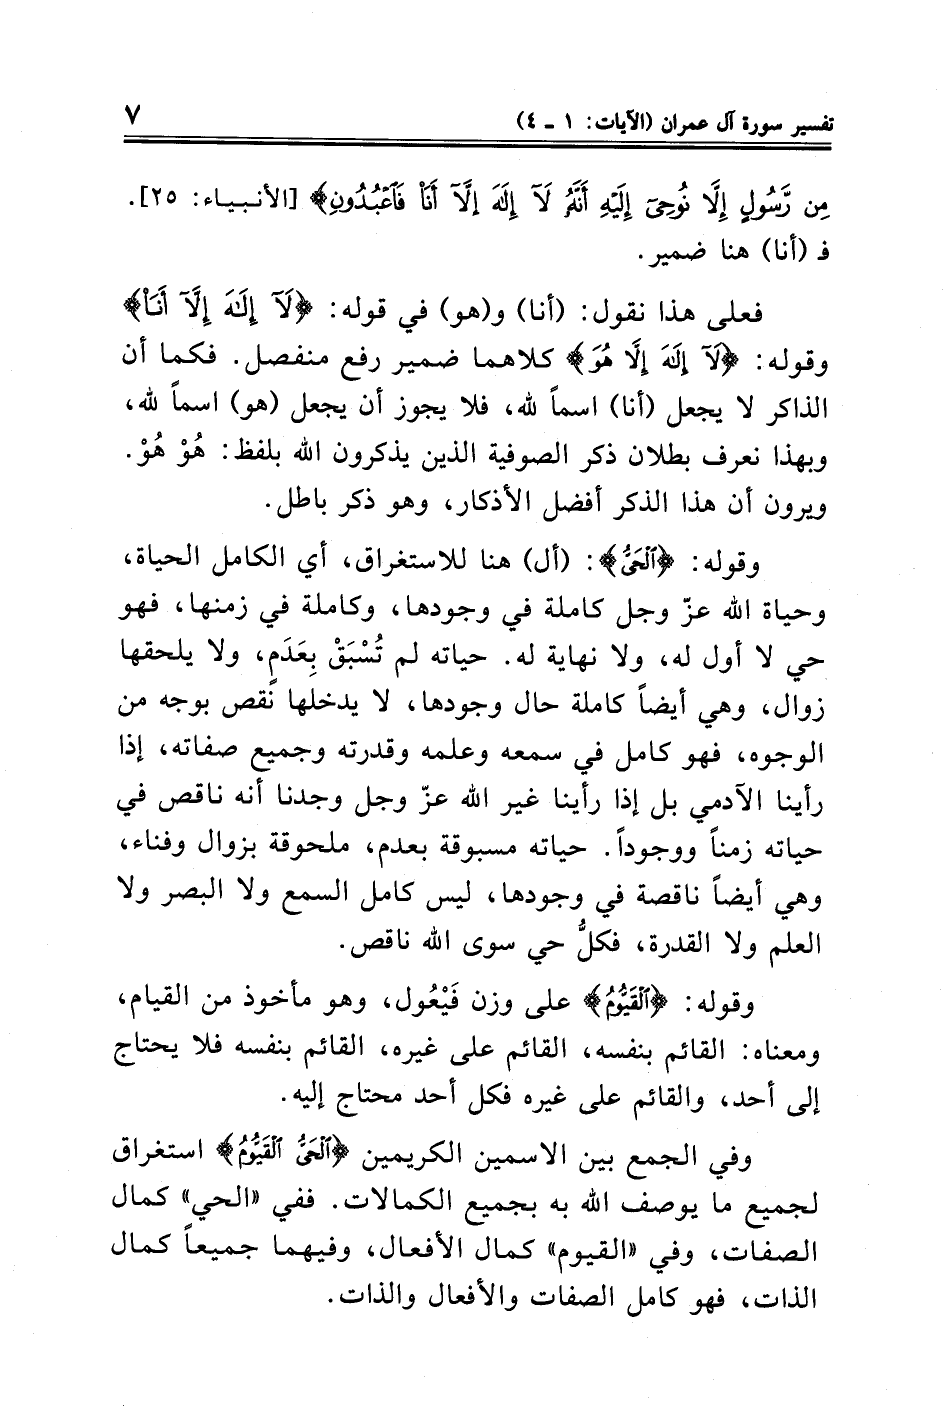 تفسير سورة آل عمران (الآيات: ١ - ٤) ٧
مِن رَّسُولٍ إِلَّا نُوحِىٓ إِلَيْهِ أَنَّهُۥ لَآ إِلَٰهَ إِلَّآ أَنَا۠ فَٱعْبُدُونِ﴾ [الأنبياء: ٢٥].
فـ (أنا) هنا ضمير.
فعلى هذا نقول: (أنا) و(هو) في قوله: ﴿لَآ إِلَٰهَ إِلَّآ أَنَا۠﴾
وقوله: ﴿لَآ إِلَٰهَ إِلَّا هُوَ﴾ كلاهما ضمير رفع منفصل. فكما أن
الذاكر لا يجعل (أنا) اسماً لله، فلا يجوز أن يجعل (هو) اسماً لله،
وبهذا نعرف بطلان ذكر الصوفية الذين يذكرون الله بلفظ: هُوْ هُوْ.
ويرون أن هذا الذكر أفضل الأذكار، وهو ذكر باطل.
وقوله: ﴿ٱلْحَىُّ﴾: (أل) هنا للاستغراق، أي الكامل الحياة،
وحياة الله عزّ وجل كاملة في وجودها، وكاملة في زمنها، فهو
حي لا أول له، ولا نهاية له. حياته لم تُسْبَقْ بِعَدَمٍ، ولا يلحقها
زوال، وهي أيضاً كاملة حال وجودها، لا يدخلها نقص بوجه من
الوجوه، فهو كامل في سمعه وعلمه وقدرته وجميع صفاته، إذا
رأينا الآدمي بل إذا رأينا غير الله عزّ وجل وجدنا أنه ناقص في
حياته زمناً ووجوداً. حياته مسبوقة بعدم، ملحوقة بزوال وفناء،
وهي أيضاً ناقصة في وجودها، ليس كامل السمع ولا البصر ولا
العلم ولا القدرة، فكلُّ حي سوى الله ناقص.
وقوله: ﴿ٱلْقَيُّومُ﴾ على وزن فَيْعُول، وهو مأخوذ من القيام،
ومعناه: القائم بنفسه، القائم على غيره، القائم بنفسه فلا يحتاج
إلى أحد، والقائم على غيره فكل أحد محتاج إليه.
وفي الجمع بين الاسمين الكريمين ﴿ٱلْحَىُّ ٱلْقَيُّومُ﴾ استغراق
لجميع ما يوصف الله به بجميع الكمالات. ففي «الحي» كمال
الصفات، وفي «القيوم» كمال الأفعال، وفيهما جميعاً كمال
الذات، فهو كامل الصفات والأفعال والذات.